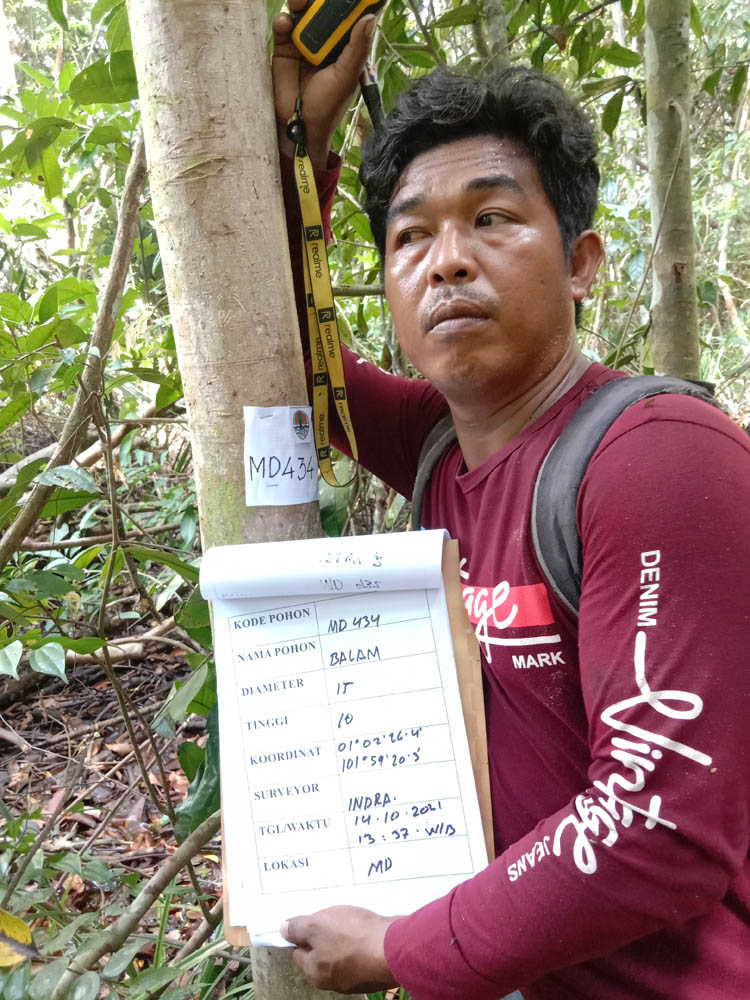 realme
R realme
R realme
R
MD434
KODE POHON MD 434
NAMA POHON BALAM
DIAMETER 15
TINGGI 10
KOORDINAT 01° 02' 26.4"
101° 59' 20.3"
SURVEYOR INDRA.
TGL/WAKTU 14.10.2021
13:37.WIB
LOKASI MD
MARK
DENIM
Vintage
JEANS